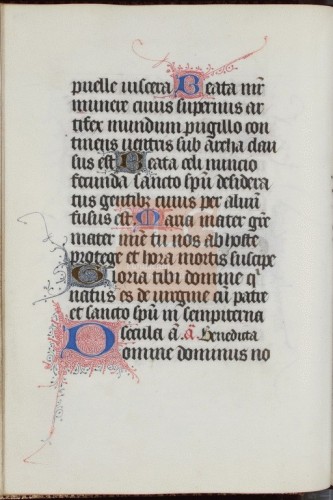 puelle viscera Beata mr̃
munere cuius supernus ar
tifex mundum pugillo con
tinens ventris sub archa clau
sus est Beata celi nuncio
fecunda sancto spũ desidera
tus gentibꝫ cuius per aluũ
fusus est Maria mater grẽ
mater mie tu nos ab hoste
protege et hora mortis suscipe
Gloria tibi domine q̃
natus es de virgine cũ patre
et sancto spũ in sempiterna
secula ã. ã. Benedicta
Domine dominus no